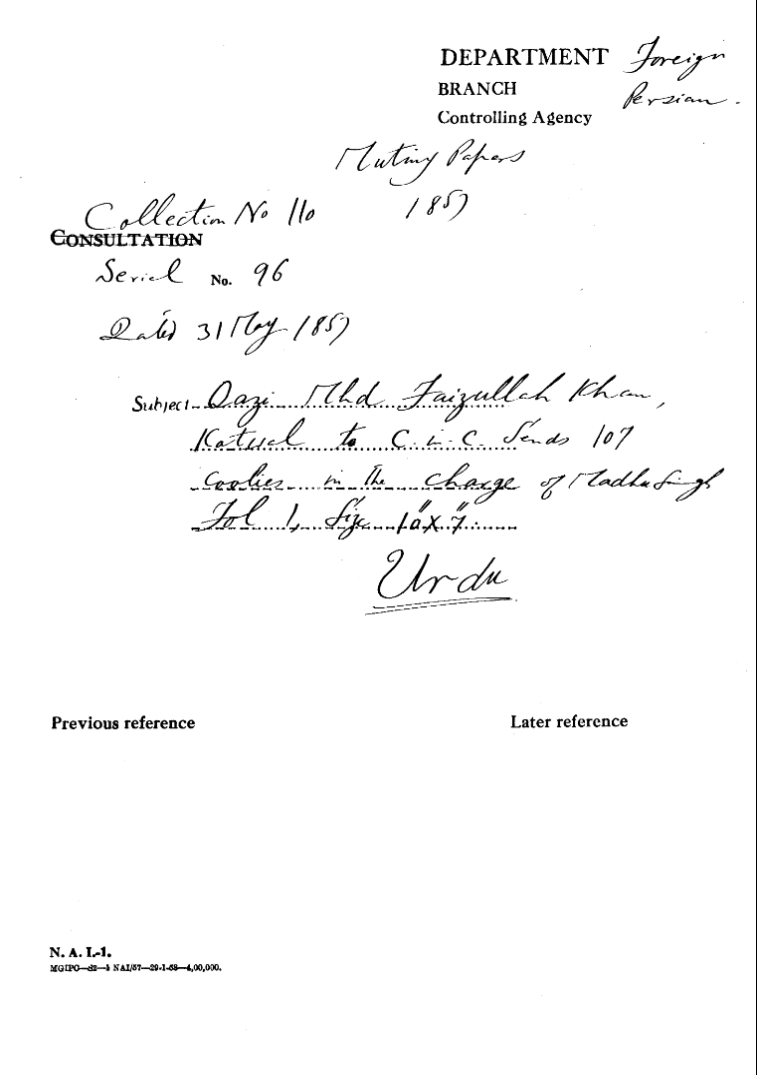 DEPARTMENT Foreign
BRANCH Persian.
Controlling Agency
Mutiny Papers
1857
Collection No 110
CONSULTATION
Serial No. 96
Dated 31 May 1857
Subject Qazi Mhd Faizullah Khan,
to C. in C. Sends 107
Coolies in the charge of Madhu Singh
Fol 1, Size 10" x 7"
Urdu
Previous reference Later reference
N. A. I.-1.
NAI/57—29-1-58—4,00,000.